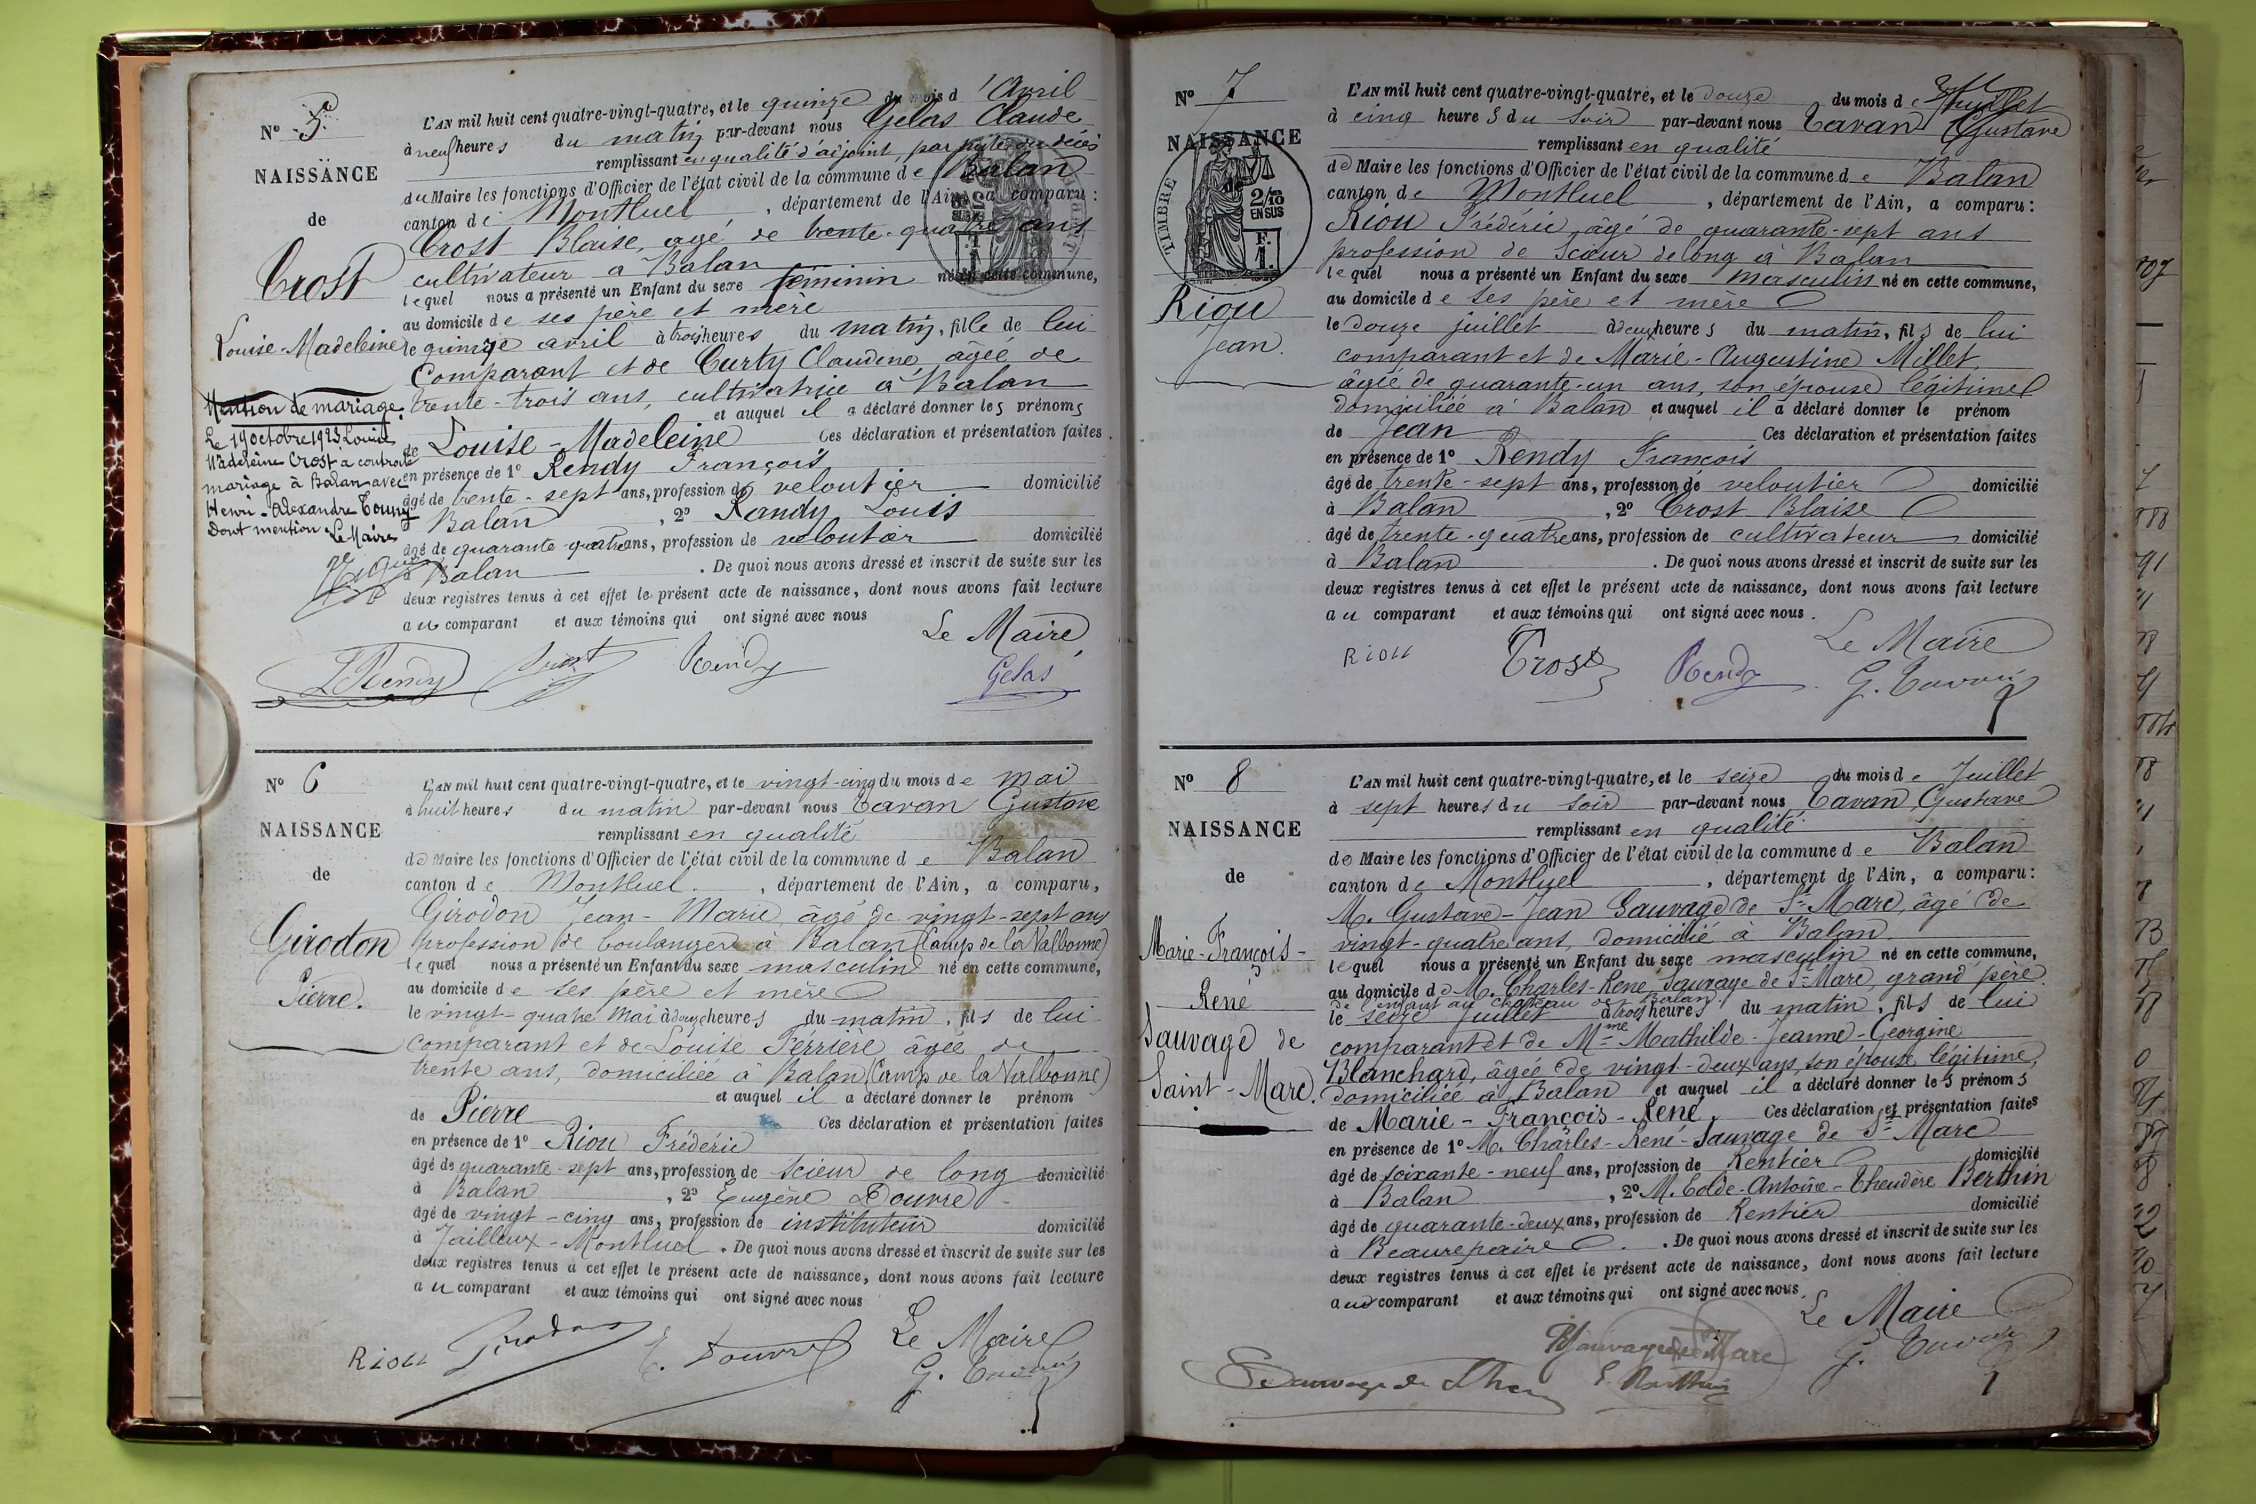 N° 5.
NAISSANCE
de
Crost
Louise-Madeleine
Mention de mariage.
Le 19 octobre 1923 Louise
Madeleine Crost a contracté
mariage à Balan avec
Henri-Alexandre
Dont mention Le Maire
L'AN mil huit cent quatre-vingt-quatre, et le quinze du mois d'Avril
à neuf heures du matin par-devant nous Gelas Claude
remplissant en qualité d'adjoint, par suite du décès
du Maire les fonctions d'Officier de l'état civil de la commune de Balan
canton de Montluel, département de l'Ain, a comparu:
Crost Blaise, agé de trente-quatre ans
cultivateur à Balan
lequel nous a présenté un Enfant du sexe féminin né en cette commune,
au domicile de ses père et mère
le quinze avril à trois heures du matin, fille de lui
comparant et de Curty Claudine, âgée de
trente-trois ans, cultivatrice à Balan
et auquel il a déclaré donner les prénoms
de Louise-Madeleine Ces déclaration et présentation faites
en présence de 1° Rendy François
âgé de trente-sept ans, profession de veloutier domicilié
à Balan, 2° Randy Louis
âgé de quarante-quatre ans, profession de veloutier domicilié
à Balan. De quoi nous avons dressé et inscrit de suite sur les
deux registres tenus à cet effet le présent acte de naissance, dont nous avons fait lecture
au comparant et aux témoins qui ont signé avec nous
Le Maire,
L Rendy Crost Rendy Gelas
N° 6
NAISSANCE
de
Girodon
Pierre.
L'AN mil huit cent quatre-vingt-quatre, et le vingt-cinq du mois de mai
à huit heures du matin par-devant nous Tavan Gustave
remplissant en qualité
de Maire les fonctions d'Officier de l'état civil de la commune de Balan
canton de Montluel, département de l'Ain, a comparu,
Girodon Jean-Marie âgé de vingt-sept ans
profession de boulanger à Balan (Camp de la Valbonne)
lequel nous a présenté un Enfant du sexe masculin né en cette commune,
au domicile de ses père et mère
le vingt-quatre mai à douze heures du matin, fils de lui
comparant et de Louise Ferrière âgée de
trente ans, domiciliée à Balan (Camp de la Valbonne)
et auquel il a déclaré donner le prénom
de Pierre Ces déclaration et présentation faites
en présence de 1° Riou Frédéric
âgé de quarante-sept ans, profession de scieur de long domicilié
à Balan, 2° Eugène Douvre
âgé de vingt-cinq ans, profession de instituteur domicilié
à Jailleux-Montluel. De quoi nous avons dressé et inscrit de suite sur les
deux registres tenus à cet effet le présent acte de naissance, dont nous avons fait lecture
au comparant et aux témoins qui ont signé avec nous
Le Maire
RIOU Girodon E. Douvre G. Tavan
N° 7
NAISSANCE
de
TIMBRE
2/10
EN SUS
F.
1.
Riou
Jean.
L'AN mil huit cent quatre-vingt-quatre, et le douze du mois de Juillet
à cinq heures du soir par-devant nous Tavan Gustave
remplissant en qualité
de Maire les fonctions d'Officier de l'état civil de la commune de Balan
canton de Montluel, département de l'Ain, a comparu:
Riou Frédéric âgé de quarante-sept ans
profession de Scieur de long à Balan
lequel nous a présenté un Enfant du sexe masculin né en cette commune,
au domicile de ses père et mère
le douze juillet à deux heures du matin, fils de lui
comparant et de Marie-Augustine Millet,
âgée de quarante-un ans, son épouse légitime
domiciliée à Balan et auquel il a déclaré donner le prénom
de Jean Ces déclaration et présentation faites
en présence de 1° Rendy François
âgé de trente-sept ans, profession de veloutier domicilié
à Balan, 2° Crost Blaise
âgé de trente-quatre ans, profession de cultivateur domicilié
à Balan. De quoi nous avons dressé et inscrit de suite sur les
deux registres tenus à cet effet le présent acte de naissance, dont nous avons fait lecture
au comparant et aux témoins qui ont signé avec nous.
Le Maire
RIOU Crost Rendy G. Tavan
N° 8
NAISSANCE
de
Marie-François-
René
Sauvage de
Saint-Marc.
L'AN mil huit cent quatre-vingt-quatre, et le seize du mois de Juillet
à sept heures du soir par-devant nous Tavan Gustave
remplissant en qualité
de Maire les fonctions d'Officier de l'état civil de la commune de Balan
canton de Montluel, département de l'Ain, a comparu:
M. Gustave-Jean Sauvage de St-Marc, âgé de
vingt-quatre ans, domicilié à Balan.
lequel nous a présenté un Enfant du sexe masculin né en cette commune,
au domicile de M. Charles-René Sauvage de St-Marc, grand père
de l'enfant au château de Balan
le seize juillet à trois heures du matin, fils de lui
comparant et de Mme Mathilde-Jeanne-Georgine
Blanchard, âgée de vingt-deux ans, son épouse légitime,
domiciliée à Balan et auquel il a déclaré donner les prénoms
de Marie-François-René. Ces déclaration et présentation faites
en présence de 1° M. Charles-René-Sauvage de St-Marc
âgé de soixante-neuf ans, profession de Rentier domicilié
à Balan, 2° M. Antoine Berthin
âgé de quarante-deux ans, profession de Rentier domicilié
à Beaurepaire. De quoi nous avons dressé et inscrit de suite sur les
deux registres tenus à cet effet le présent acte de naissance, dont nous avons fait lecture
au comparant et aux témoins qui ont signé avec nous.
Le Maire
Sauvage de St Marc
G. Tavan
Sauvage de E. Berthin